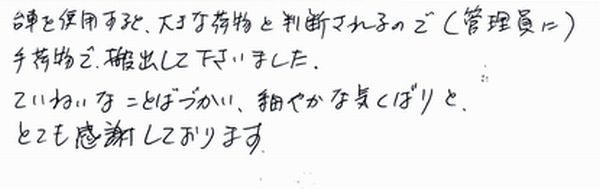 台車を使用すると、大きな荷物と判断されるので(管理員に)
手荷物で、搬出して下さいました.
ていねいなことばづかい、細やかな気くばりと、
とても感謝しております.